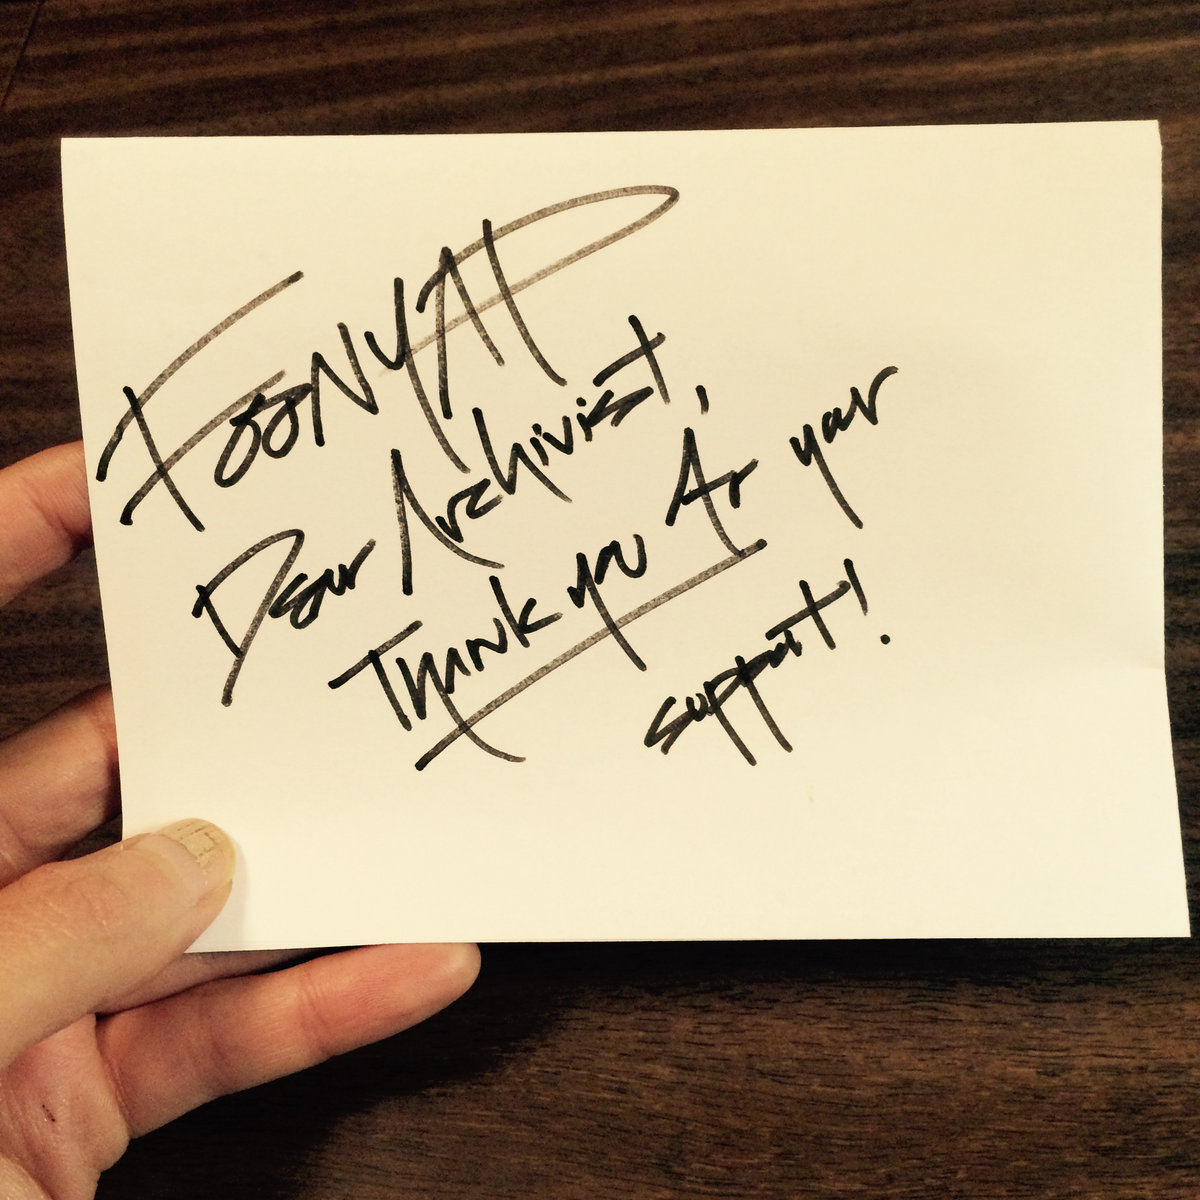 FOONYAP
Dear Archivist,
Thank you for your
support!